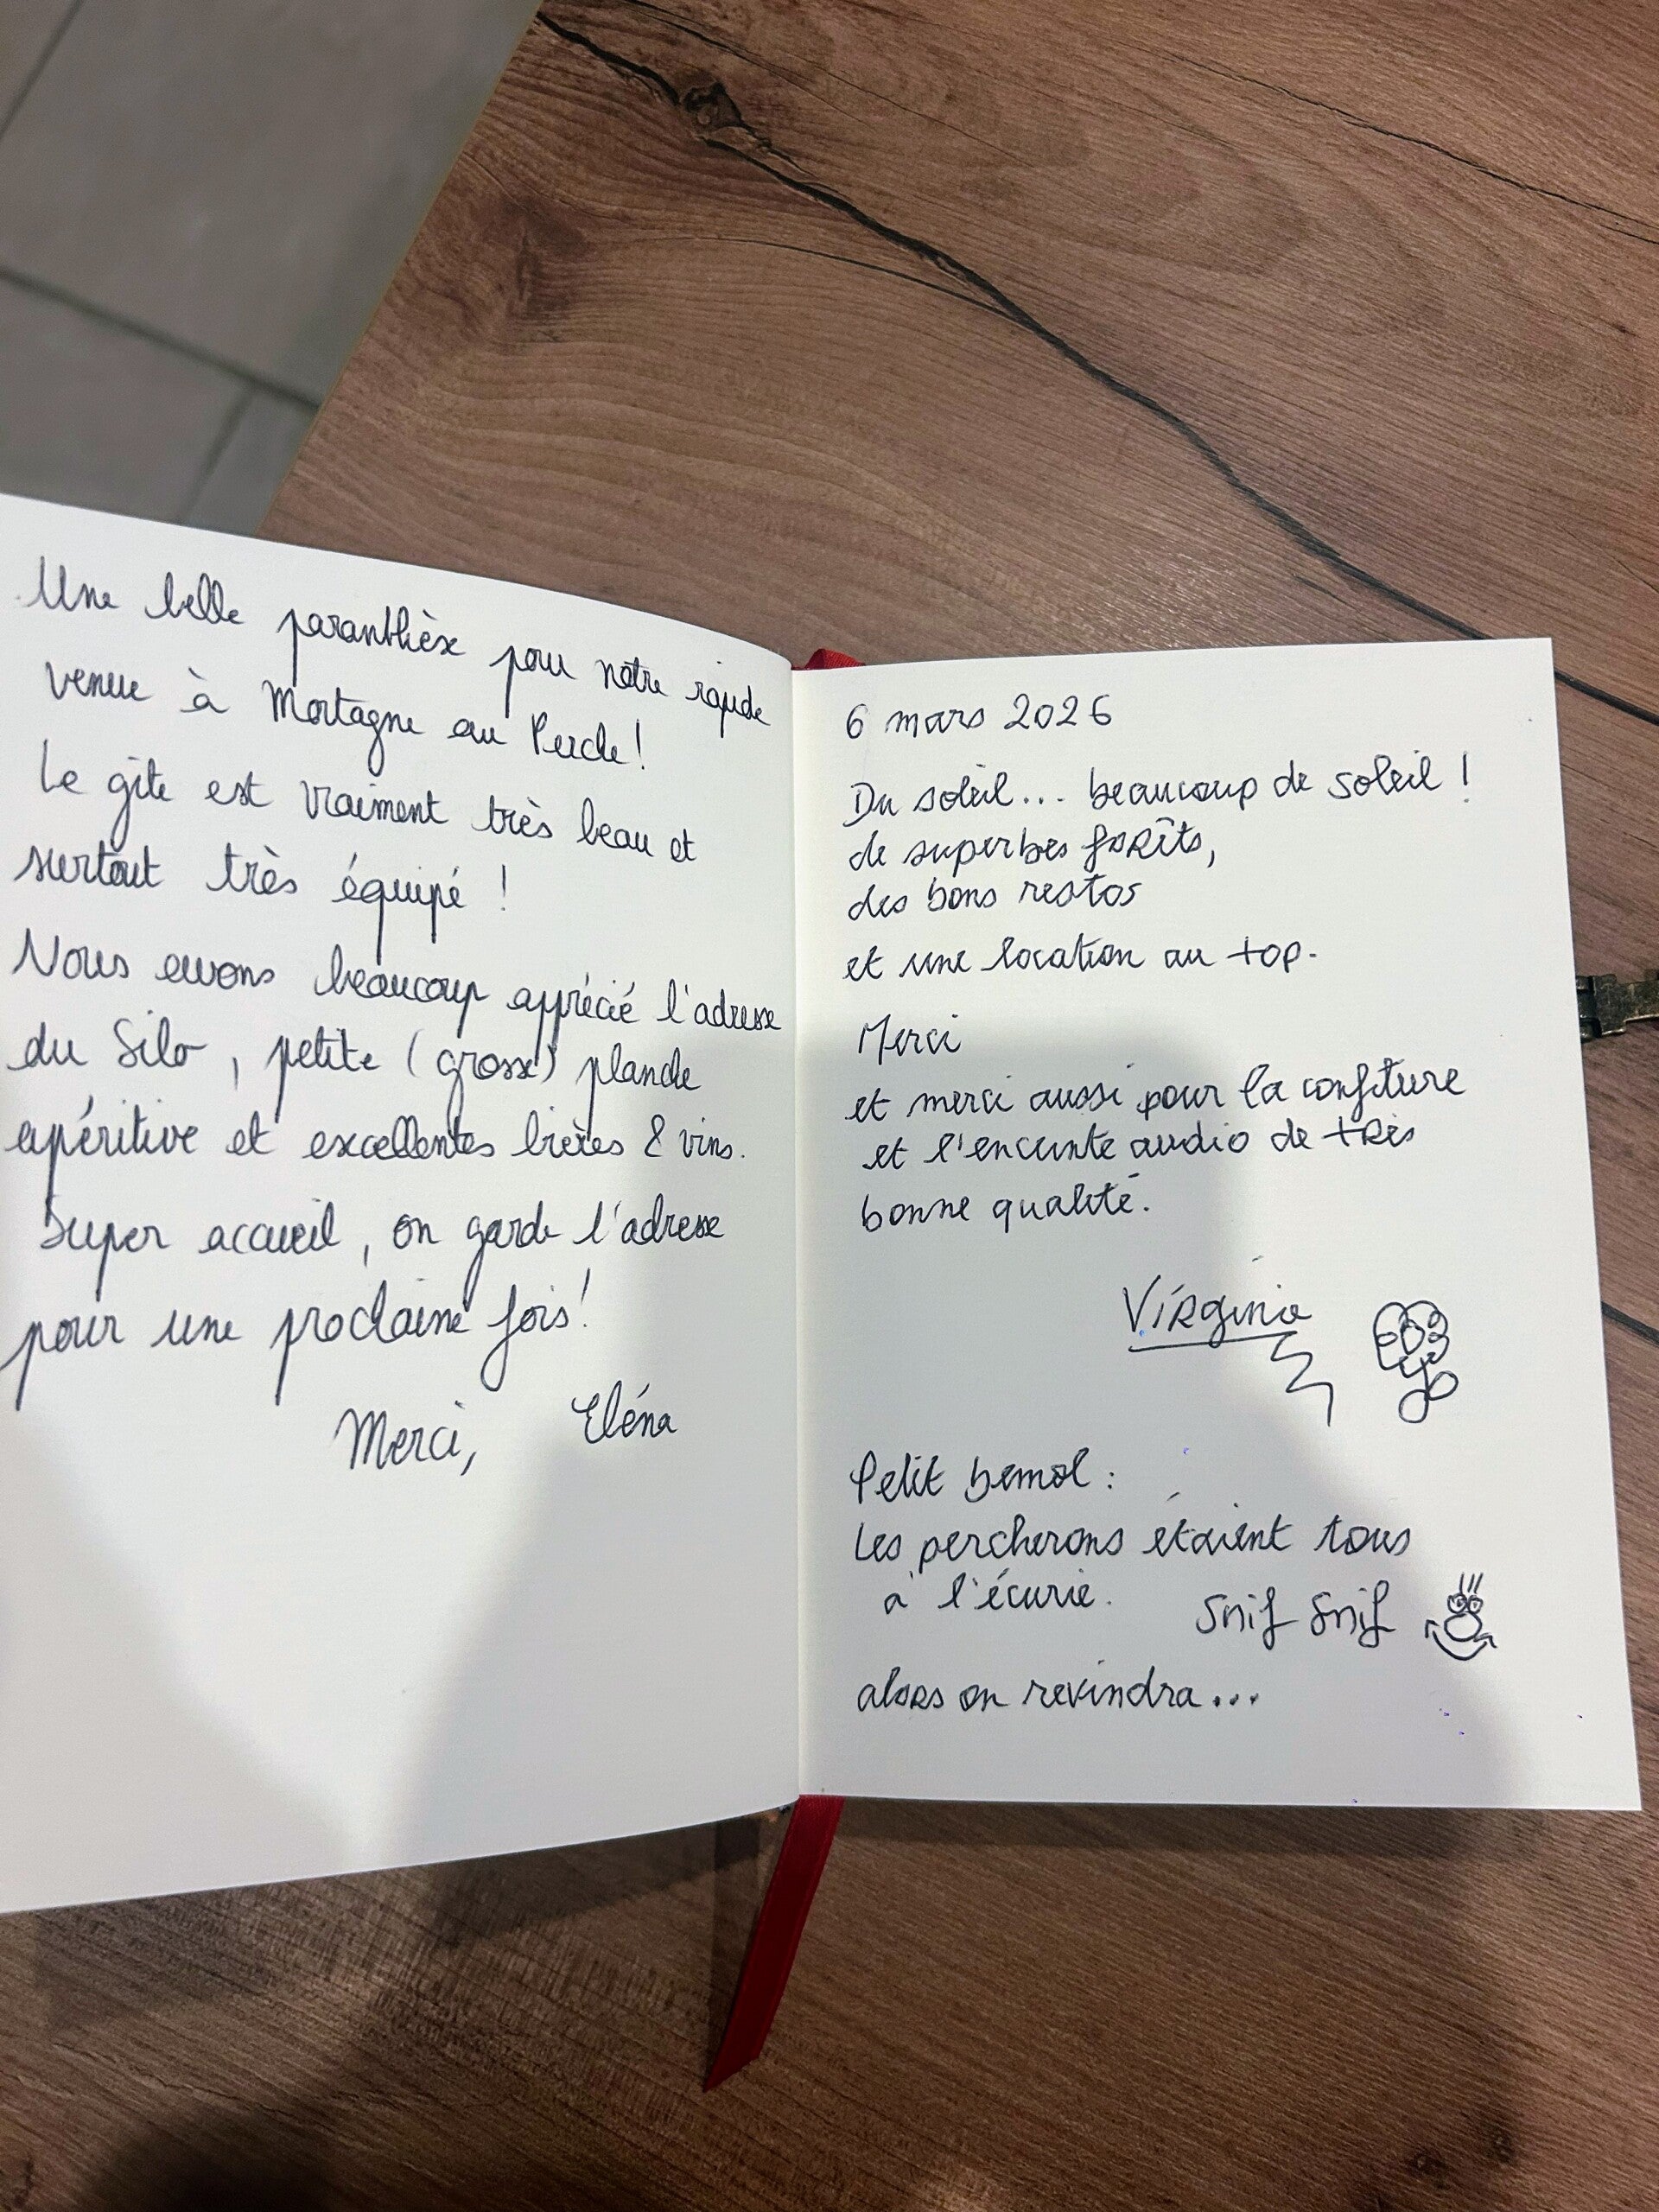 Une belle paranthèse pour notre rapide
venue à Mortagne au Perche !
Le gite est vraiment très beau et
surtout très équipé !
Nous avons beaucoup apprécié l'adresse
du Silo, petite (grosse) planche
apéritive et excellentes bières & vins.
Super accueil, on garde l'adresse
pour une prochaine fois !
Merci, Eléna
6 mars 2026
Du soleil... beaucoup de soleil !
de superbes forêts,
des bons restos
et une location au top.
Merci
et merci aussi pour la confiture
et l'enceinte audio de très
bonne qualité.
Virginie
Petit bemol :
Les percherons étaient tous
à l'écurie. Snif Snif
alors on reviendra...